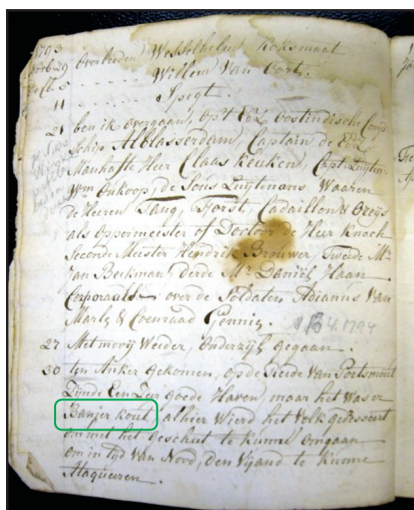 1793
overleeden Wesselhelm Koksmaat
Willem Van Oort.
11 Spegt.
21 ben ik overgaan, op't Ed. Oostindische Comp
Schip Alblasserdam, Captain de Ed.
Manhafte Heer Claas Keuken, Capt. Luyten
Wm Onkoop, de Sous Luytenans, Waaren
de Heeren, Tang, Forst, Cadaillon & Greys
als Oppermeister of Doctoor de Heer Knoch
Seconde Meister Hendrik Brouwer, Tweide Mr
Jan Beekman Derde Mr Daniël Haan
Corporaals over de Soldaten Adianus Van
Marle & Coenraad Gennig.
27 Met mooy Weeder, onderzeyl gegaan.
30 ten Anker gekomen, op de Reede Van Portsmout
Zijnde Een Zeer goede Haven, maar het Was er
Banjer kout, alhier Wierd het Volk
om met het geschut te kunne omgaan
om in tyd Van Nord, den Vyand te kunne
Ataqueeren.